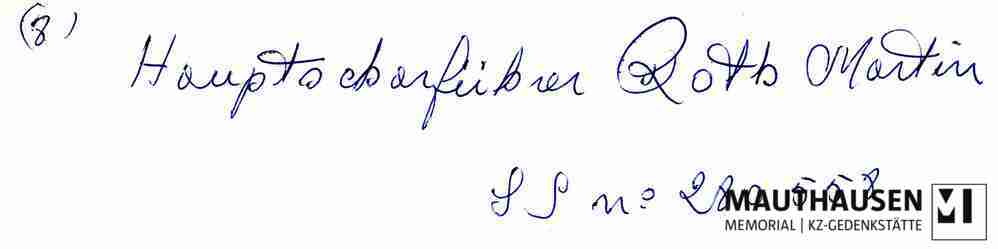 (8)
Hauptscharführer Roth Martin
SS nº
MAUTHAUSEN
MEMORIAL | KZ-GEDENKSTÄTTE